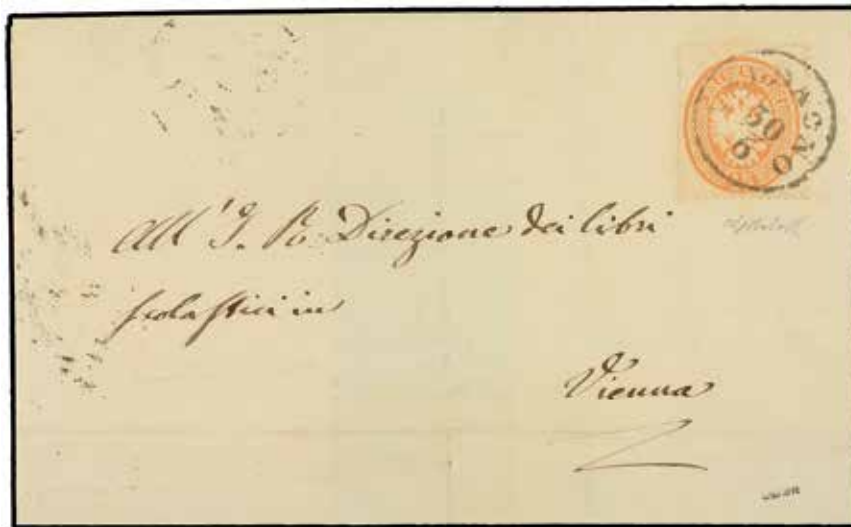 30
All' I. R. Direzione dei libri
scolastici in
Vienna